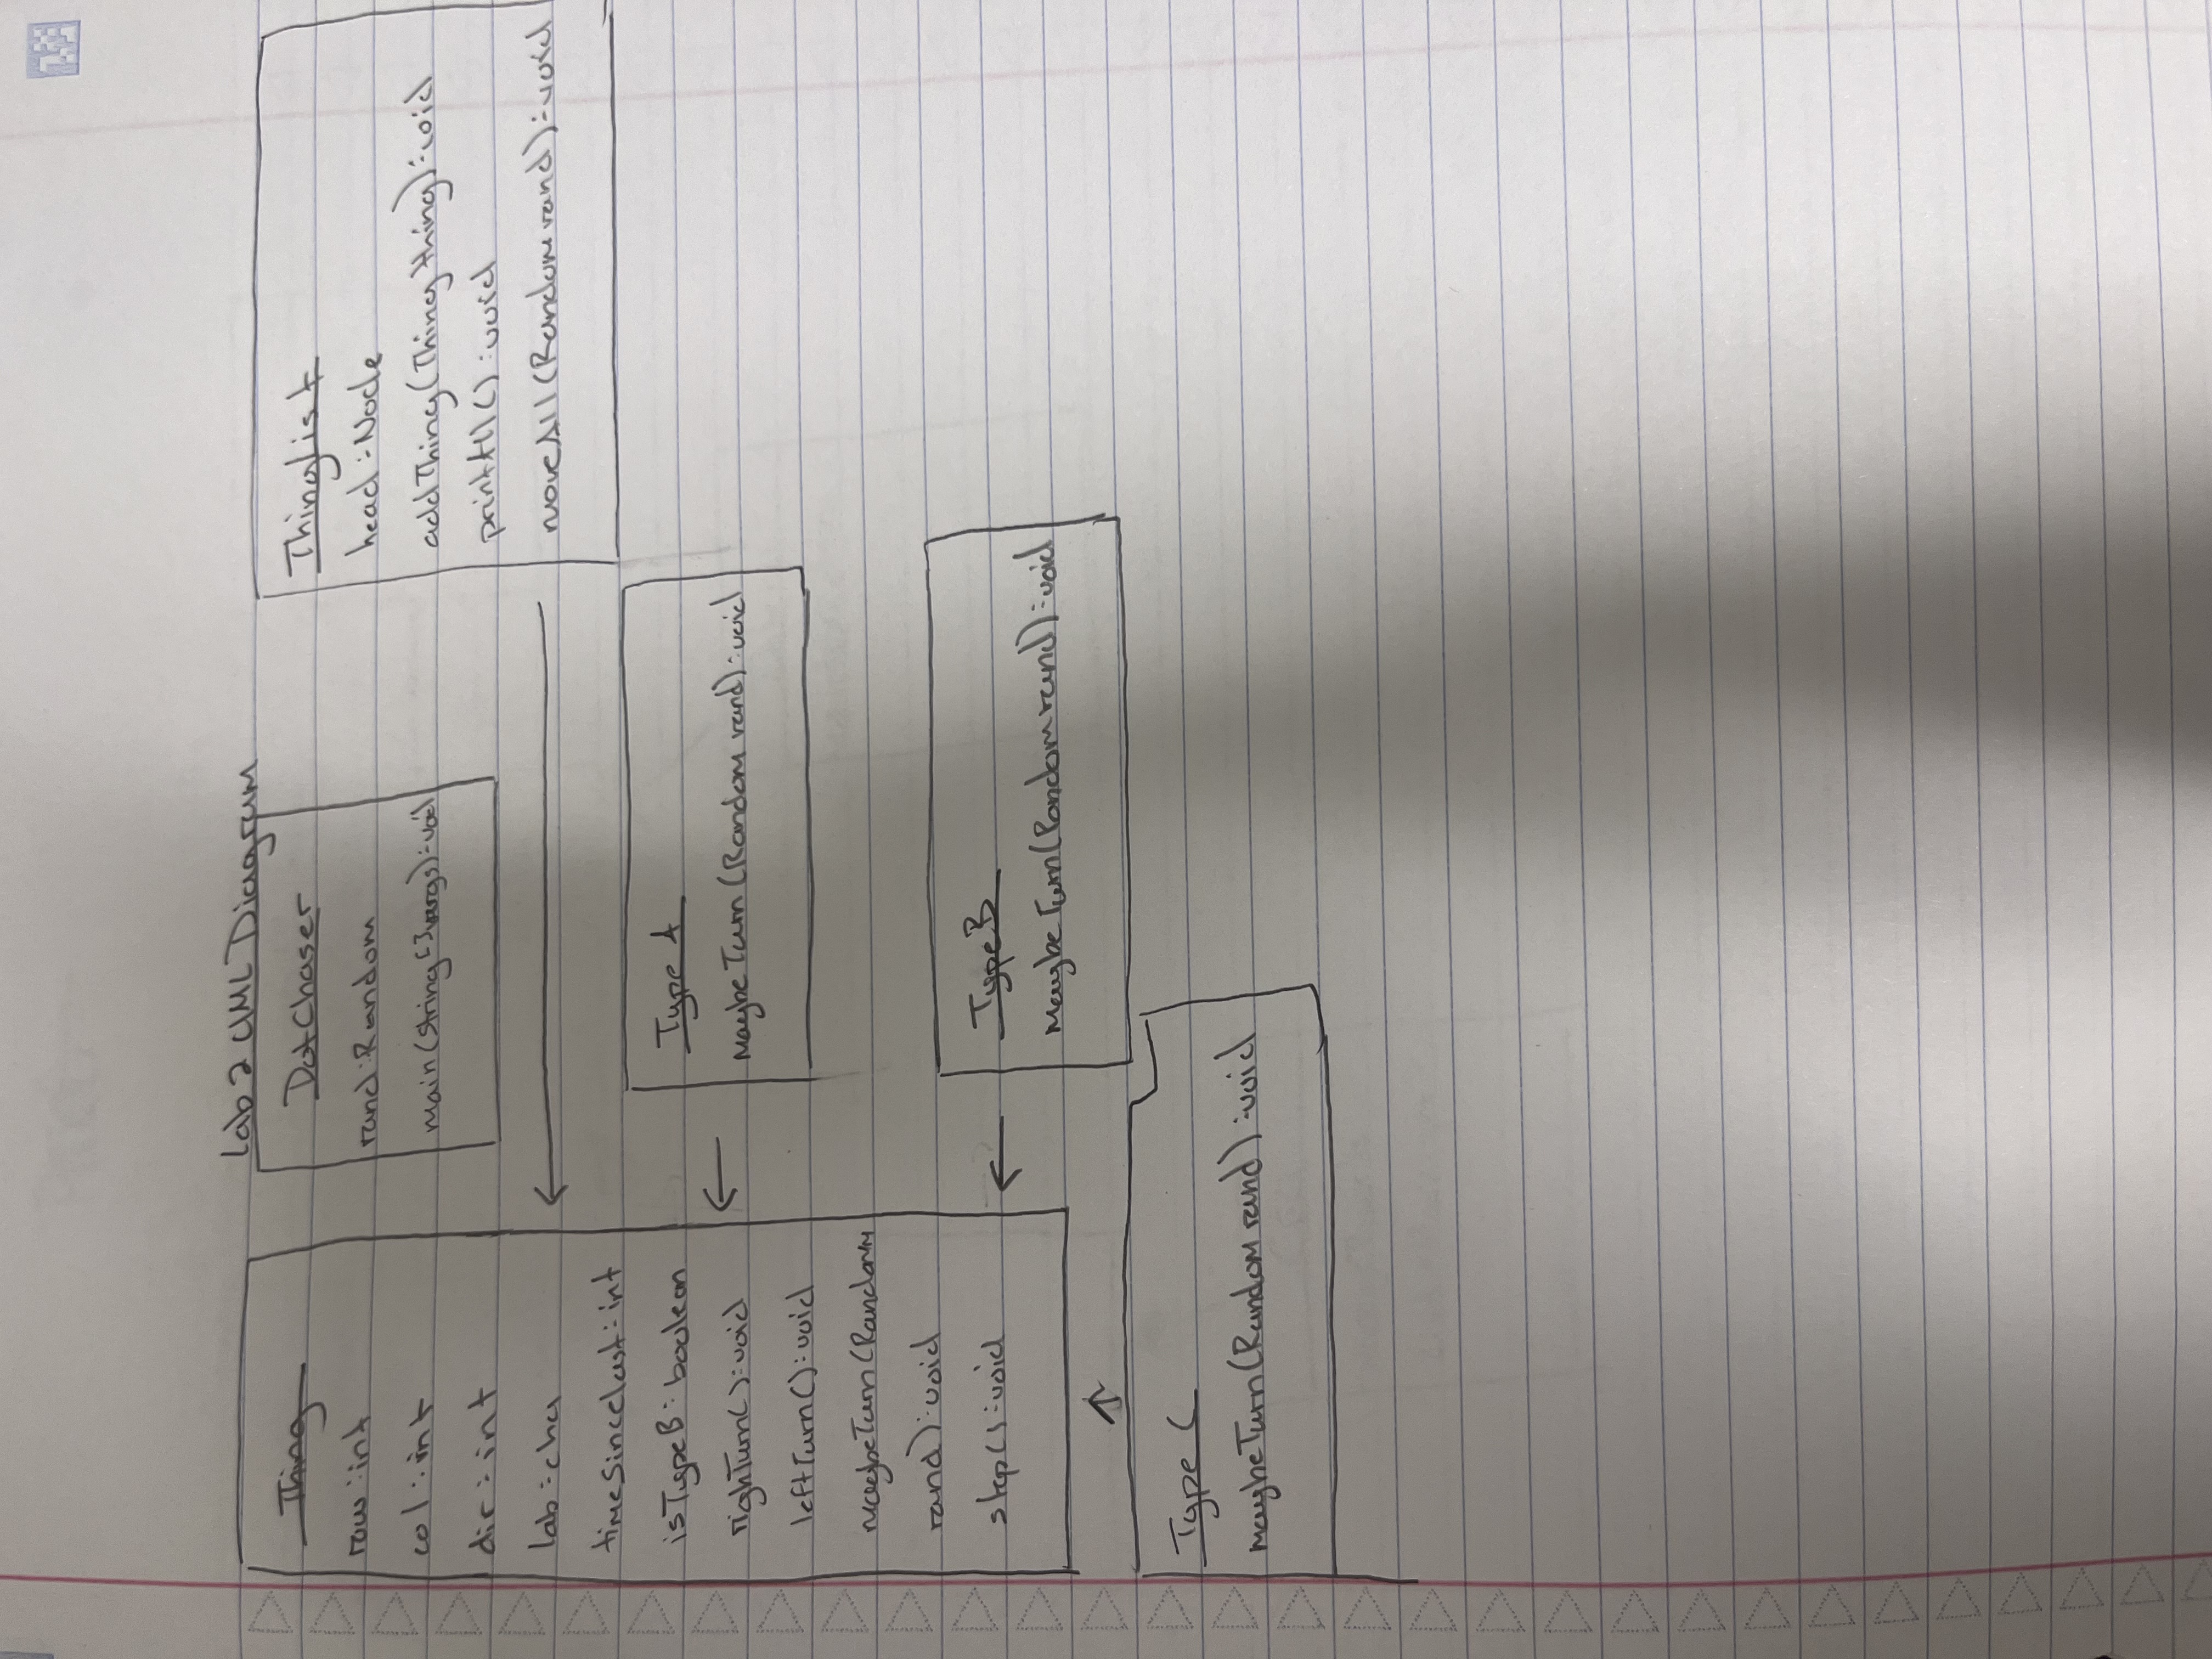 Lab 2 UML Diagram
Thing
row:int
col:int
dir:int
lab:cha
timeSinceLast:int
isTypeB:boolean
righTurn():void
leftTurn():void
maybeTurn(Random
rand):void
step():void
DotChaser
rand:Random
main(String[]args):void
ThingList
head:Node
addThing(Thing thing):void
printAll():void
moveAll(Random rand):void
Type A
maybeTurn(Random rand):void
Type B
maybeTurn(Random rand):void
Type C
maybeTurn(Random rand):void